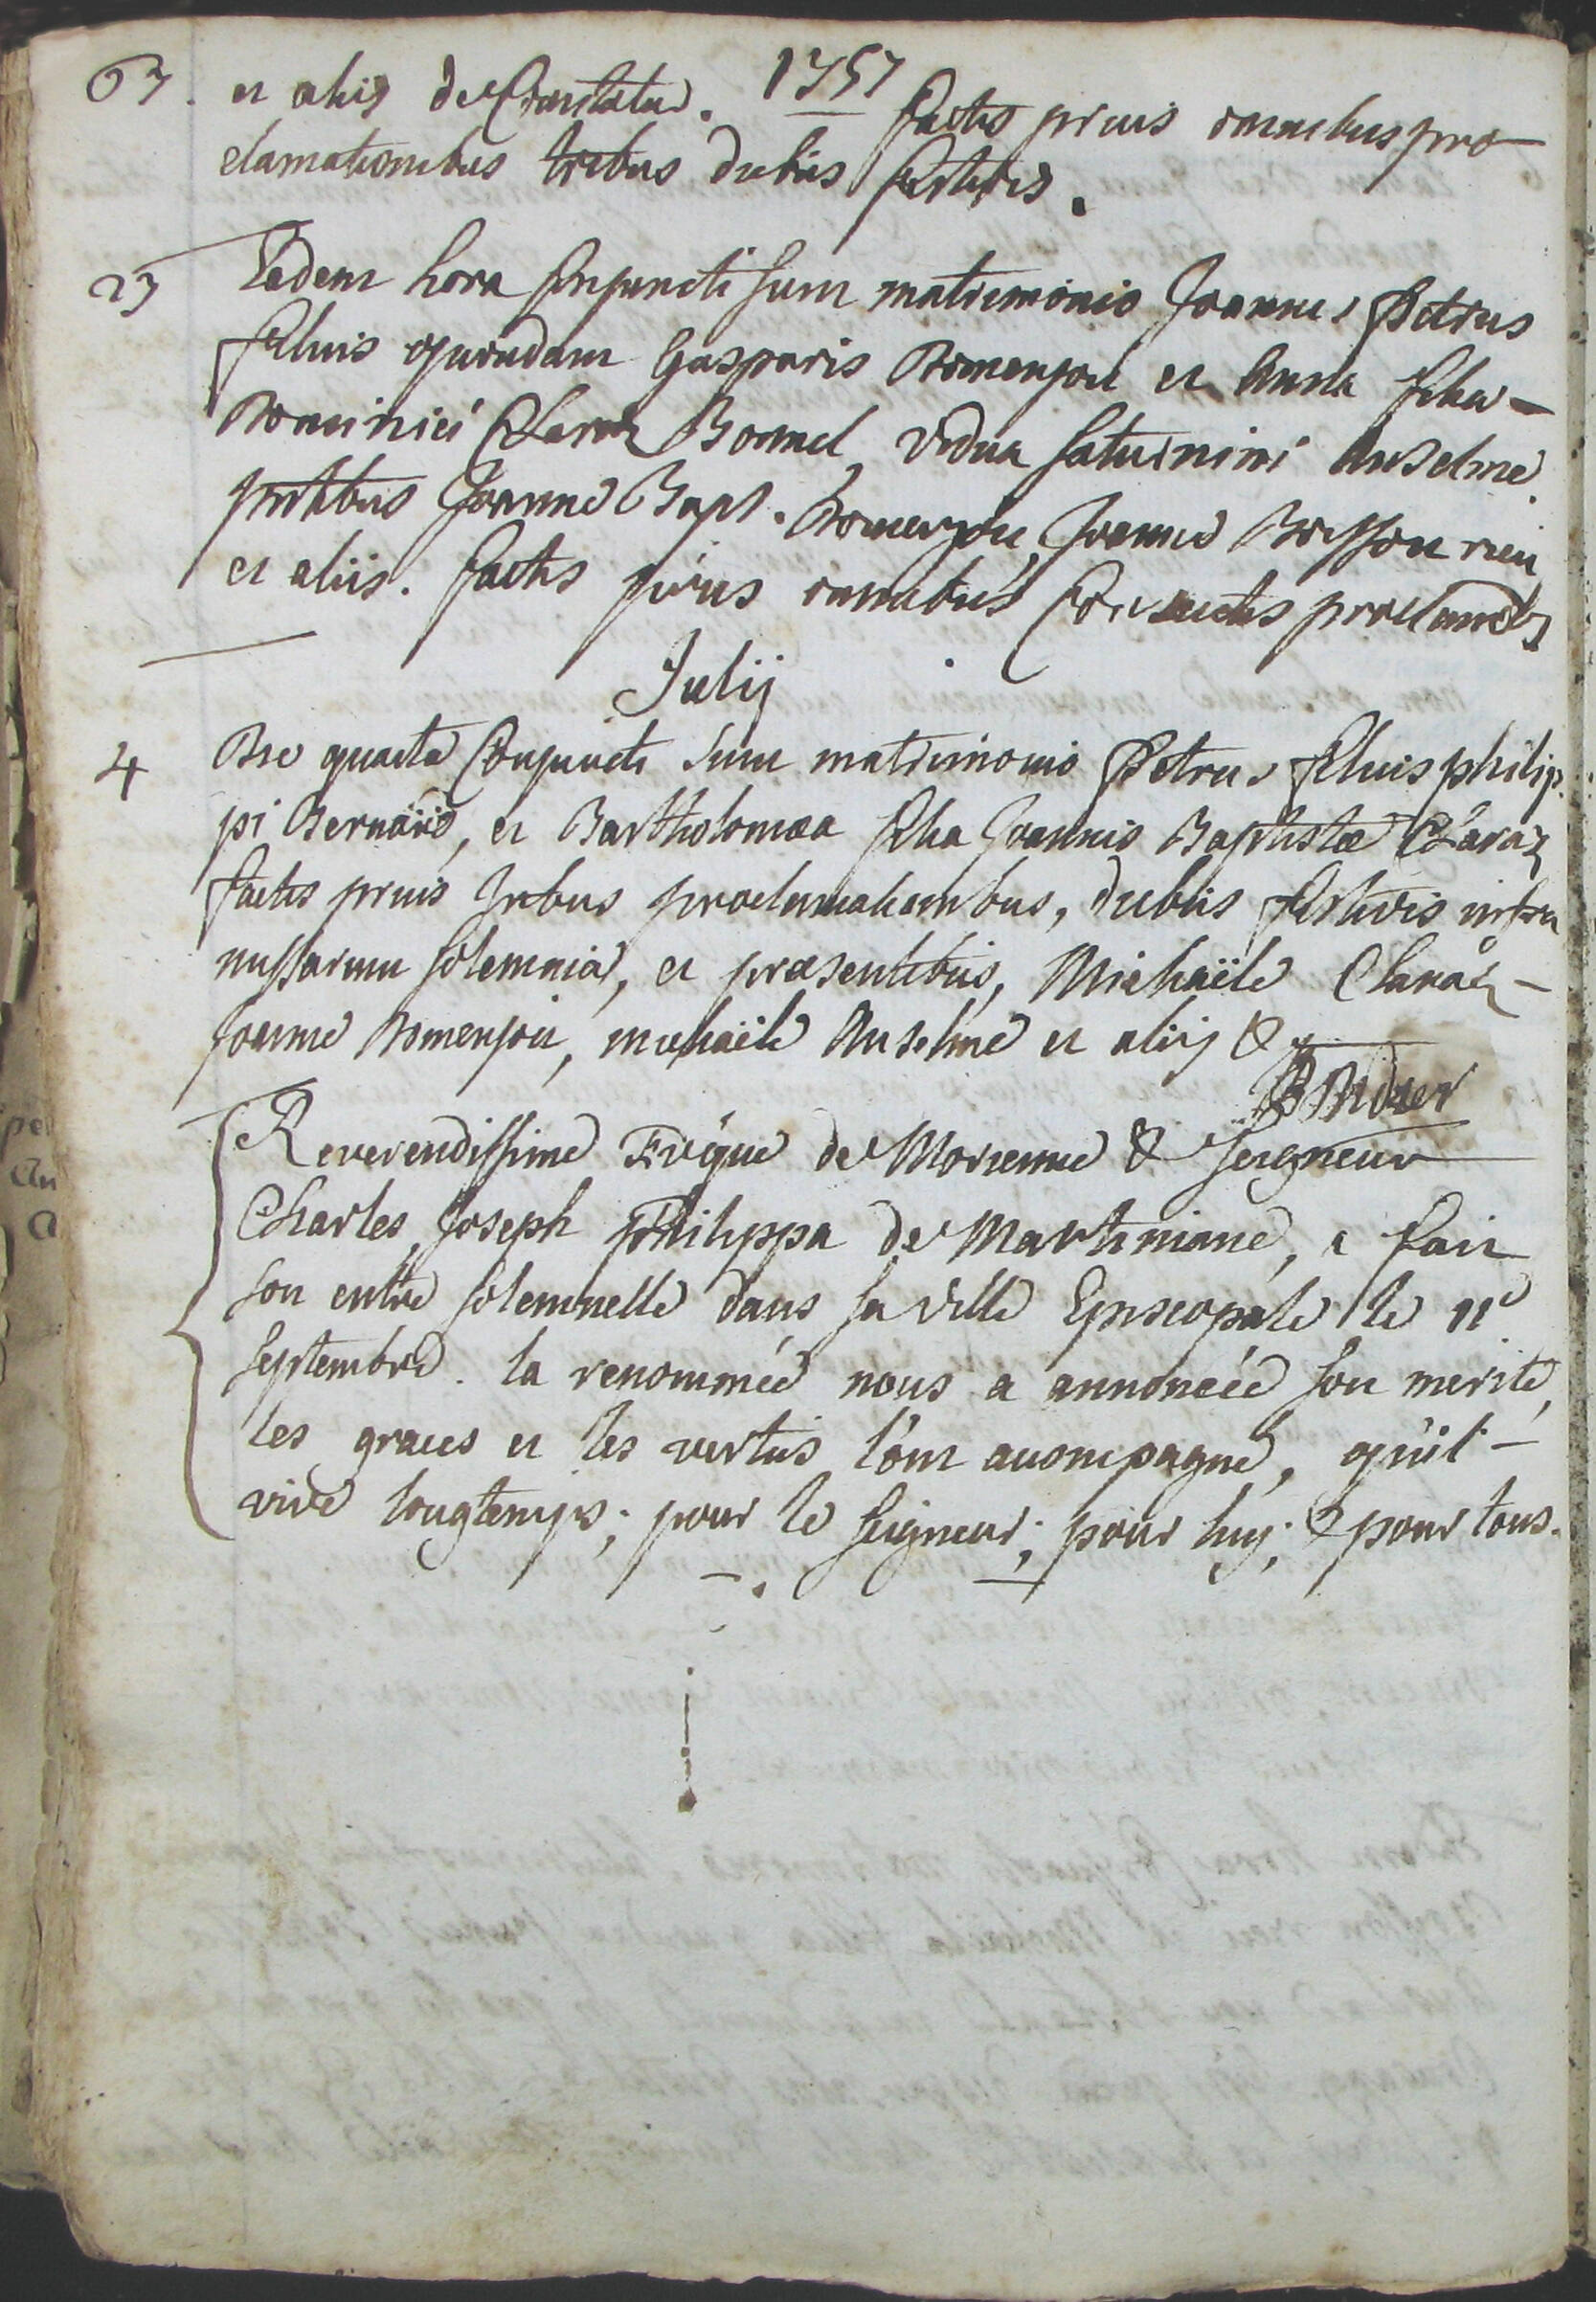 1757
63. et aliis de Caritate. factis prius omnibus pro-
clamationibus tribus diebus festivis.
23 Eadem hora conjuncti sunt matrimonio Joannes Petrus
filius quondam Gasparis Domenjou et Anna filia -
Dominici Claraz Bonnel, vidua Saturnini Anselme
pntibus Joanne Bapt. Domenjou, Joanne Buisson rieu
et aliis. factis prius omnibus consuetis proclam
Julij
4 Die quarta conjuncti sunt matrimonio Petrus filius philip-
pi Bernard, et Bartholomæa filia Joannis Baptistæ Claraz
factis prius tribus proclamationibus, diebus festivis intra
missarum solemnia, et præsentibus, Michaële Claraz -
Joanne Domenjou, michaële Anselme et aliis &
Reverendissime Evéque de Morienne & Seigneur
Charles Joseph Philippa de Martiniane, a fait
son entré solemnelle dans sa ville Episcopale le 11e
Septembre. la renommée nous a annoncée son merite,
les graces et les vertus l'ont acompagné, qu'il -
vive longtemps; pour le seigneur; pour luy; & pour tous.